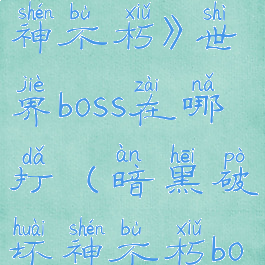 shén bù xiǔ shì
神不朽》世
jiè zài nǎ
界boss在哪
dǎ àn hēi pò
打（暗黑破
huài shén bù xiǔ
坏神不朽bo